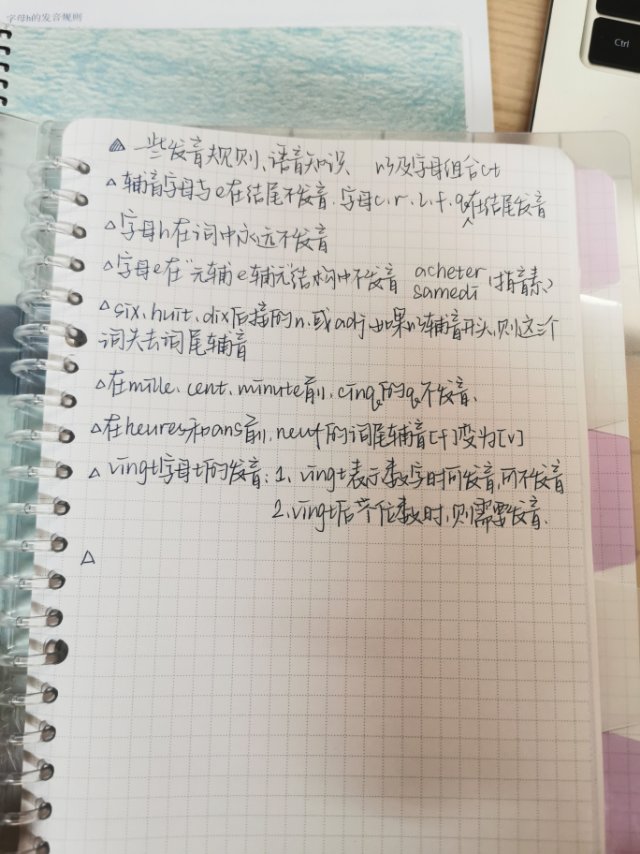 字母h的发音规则
Ctrl
一些发音规则、语音知识 以及字母组合ct
△辅音字母与e在结尾不发音.字母c.r.l.f.q在结尾发音
△字母h在词中永远不发音
△字母e在"元辅e辅元"结构中不发音 acheter (指音素)
samedi
△six、huit、dix后接的n.或adj如果以辅音开头,则这三个
词失去词尾辅音
△在mille、cent、minute前,cinq的q不发音、
△在heures和ans前,neuf的词尾辅音[f]变为[v]
△vingt字母t的发音:1、vingt表示数字时可发音,可不发音
2、vingt后带个位数时,则需要发音.
△